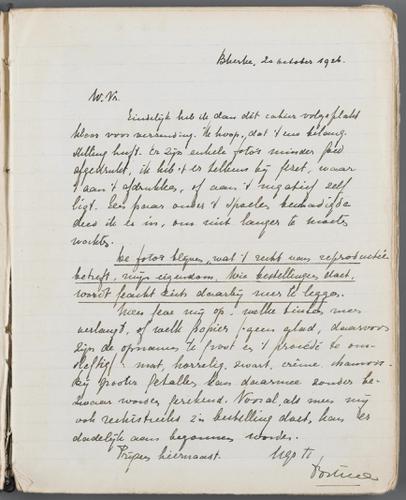 20 october 1926.
W. Vr.
Eindelijk heb ik dan dit cahier volgeplakt
klaar voor verzending. Ik hoop, dat 't uw belang-
stelling heeft. Er zijn enkele foto's minder goed
afgedrukt, ik heb 't er telkens bij gezet, waar
't aan 't afdrukken, of aan 't negatief zelf
ligt. Een paar onder 't spoelen beschadigde
deed ik er in, om niet langer te moeten
wachten.
De foto's blijven, wat 't recht van reproductie
betreft, mijn eigendom. Wie bestellingen doet,
wordt geacht zich daarbij neer te leggen.
Men geve mij op: welke tinten men
verlangt, of welk papier (geen glad, daarvoor
zijn de opnamen te groot en 't procédé te om-
slachtig) mat, korrelig, zwart, crême, chamois.
Bij grooter getallen kan daarmee zonder be-
zwaar worden gerekend. Vooral, als men mij
ook rechtstreeks zijn bestelling doet, kan er
dadelijk aan begonnen worden.
Prijzen hiernaast.